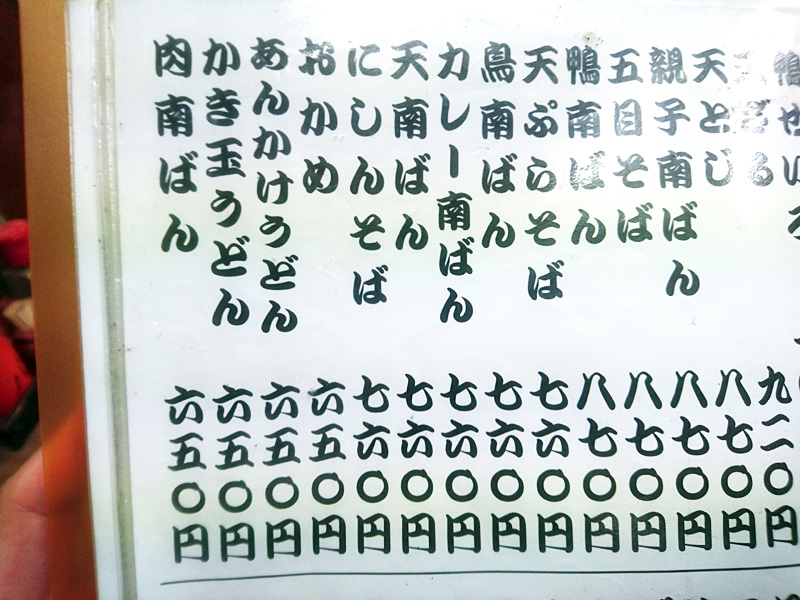 鴨せいろ
ざる 九二〇円
天とじ 八七〇円
親子南ばん 八七〇円
五目そば 八七〇円
鴨南ばん 八七〇円
天ぷらそば 七六〇円
鳥南ばん 七六〇円
カレー南ばん 七六〇円
天南ばん 七六〇円
にしんそば 七六〇円
おかめ 六五〇円
あんかけうどん 六五〇円
かき玉うどん 六五〇円
肉南ばん 六五〇円